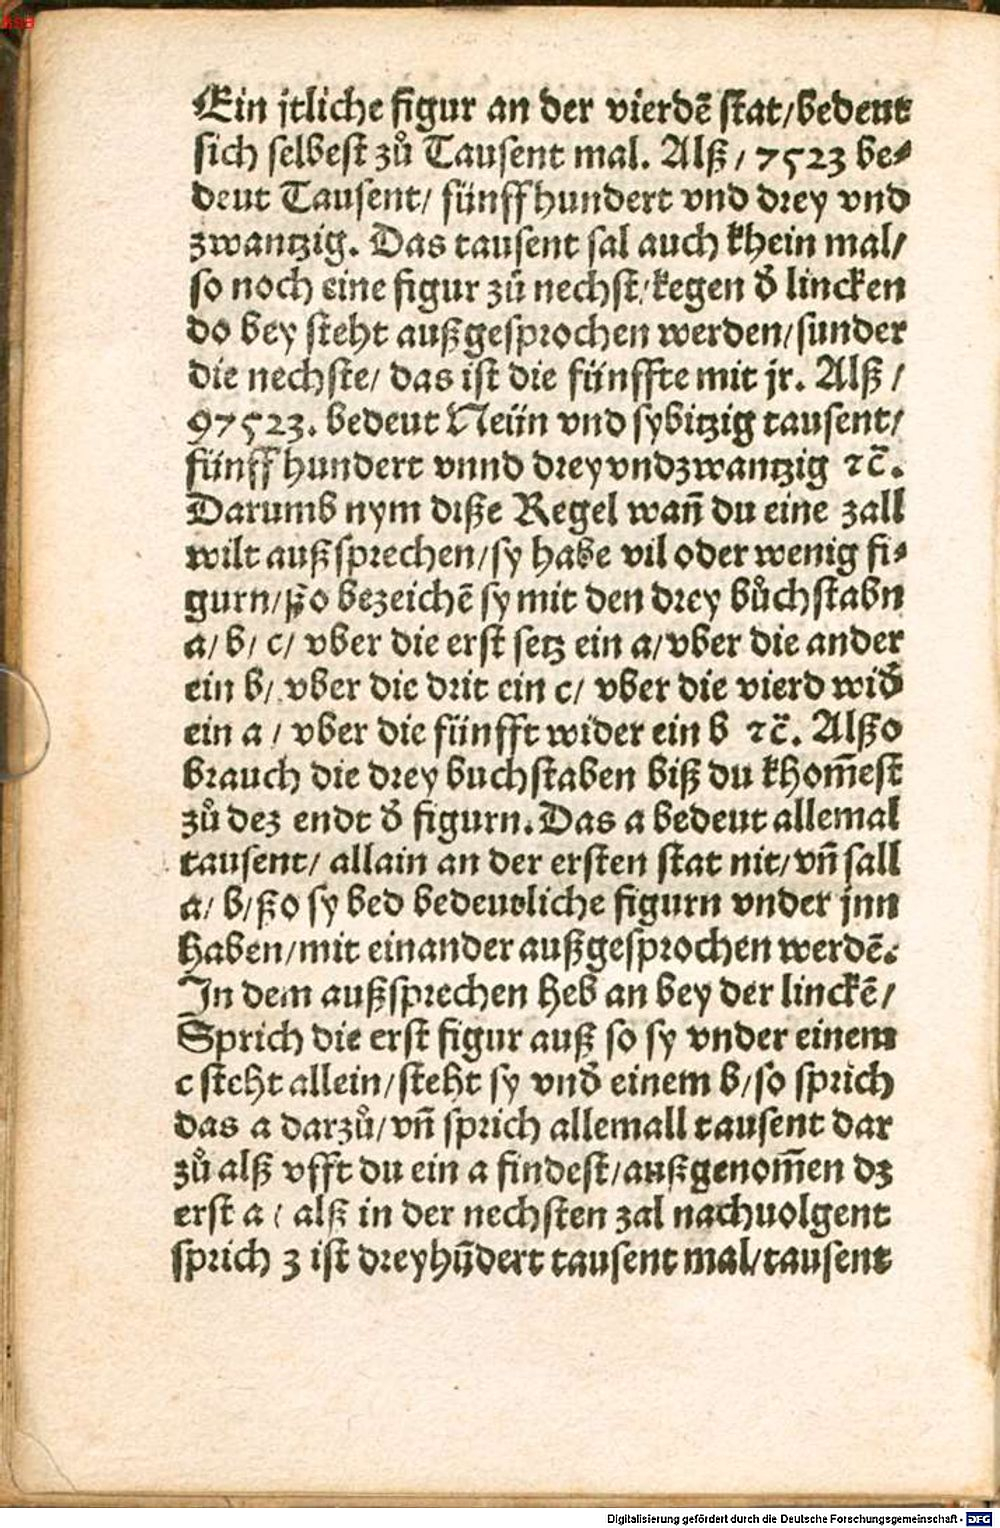 Ein jtliche figur an der vierdē stat/bedeut
sich selbest zů Tausent mal. Alß/ 7523 be⸗
deut Tausent/ fünffhundert vnd drey vnd
zwantzig. Das tausent sal auch khein mal/
so noch eine figur zů nechst/kegen d̄ lincken
do bey steht außgesprochen werden/sunder
die nechste/ das ist die fünffte mit jr. Alß/
97523. bedeut Neün vnd sybitzig tausent/
fünffhundert vnnd drey vndzwantzig ⁊c̄.
Darumb nym diße Regel wañ du eine zall
wilt außsprechen/sy habe vil oder wenig fi⸗
gurn/ßo bezeichē sy mit den drey bůchstabn
a/ b/ c/ vber die erst setz ein a/vber die ander
ein b/ vber die drit ein c/ vber die vierd wid̄
ein a/ vber die fünfft wider ein b ⁊c̄. Alßo
brauch die drey buchstaben biß du khom̄est
zů dez endt d̄ figurn. Das a bedeut allemal
tausent/ allain an der ersten stat nit/vñ sall
a/ b/ßo sy bed bedeutliche figurn vnder jnn
haben/mit einander außgesprochen werdē.
In dem außsprechen heb an bey der linckē/
Sprich die erst figur auß so sy vnder einem
c steht allein/steht sy vnd̄ einem b/so sprich
das a darzů/vñ sprich allemall tausent dar
zů alß vfft du ein a findest/außgenom̄en dz
erst a/ alß in der nechsten zal nachuolgent
sprich 3 ist dreyhūdert tausent mal/tausent
Digitalisierung gefördert durch die Deutsche Forschungsgemeinschaft - DFG